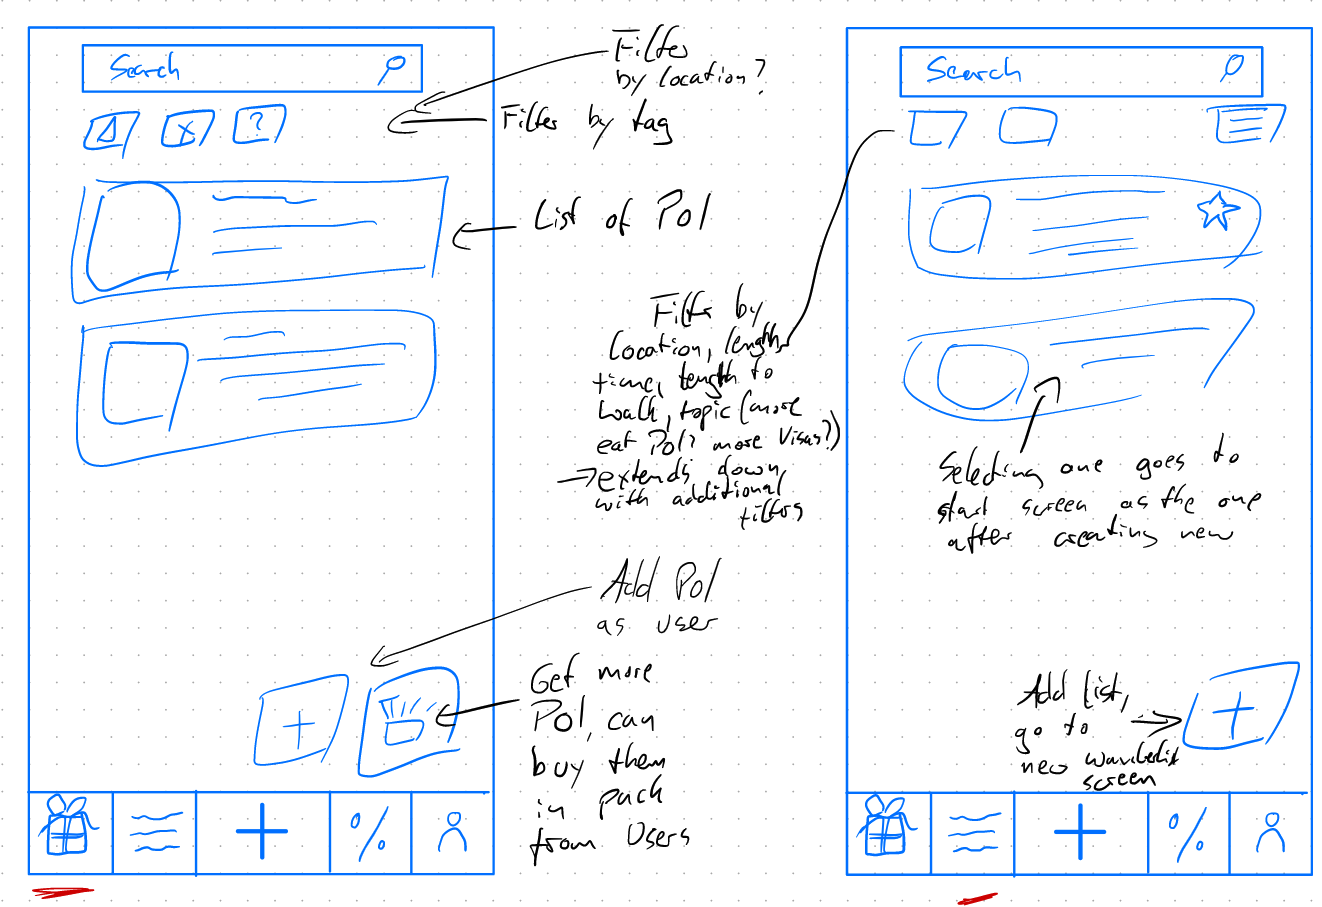 Search
Filter
by location?
Filter by tag
?
List of PoI
Filter by
location, length,
time, length to
walk, topic (more
eat PoI? more Visas?)
→ extends down
with additional
filters
Add PoI
as user
Get more
PoI, can
buy them
in pack
from Users
+
%
Search
Selecting one goes to
start screen as the one
after creating new
Add list,
go to
new wanderlist
screen
+
%